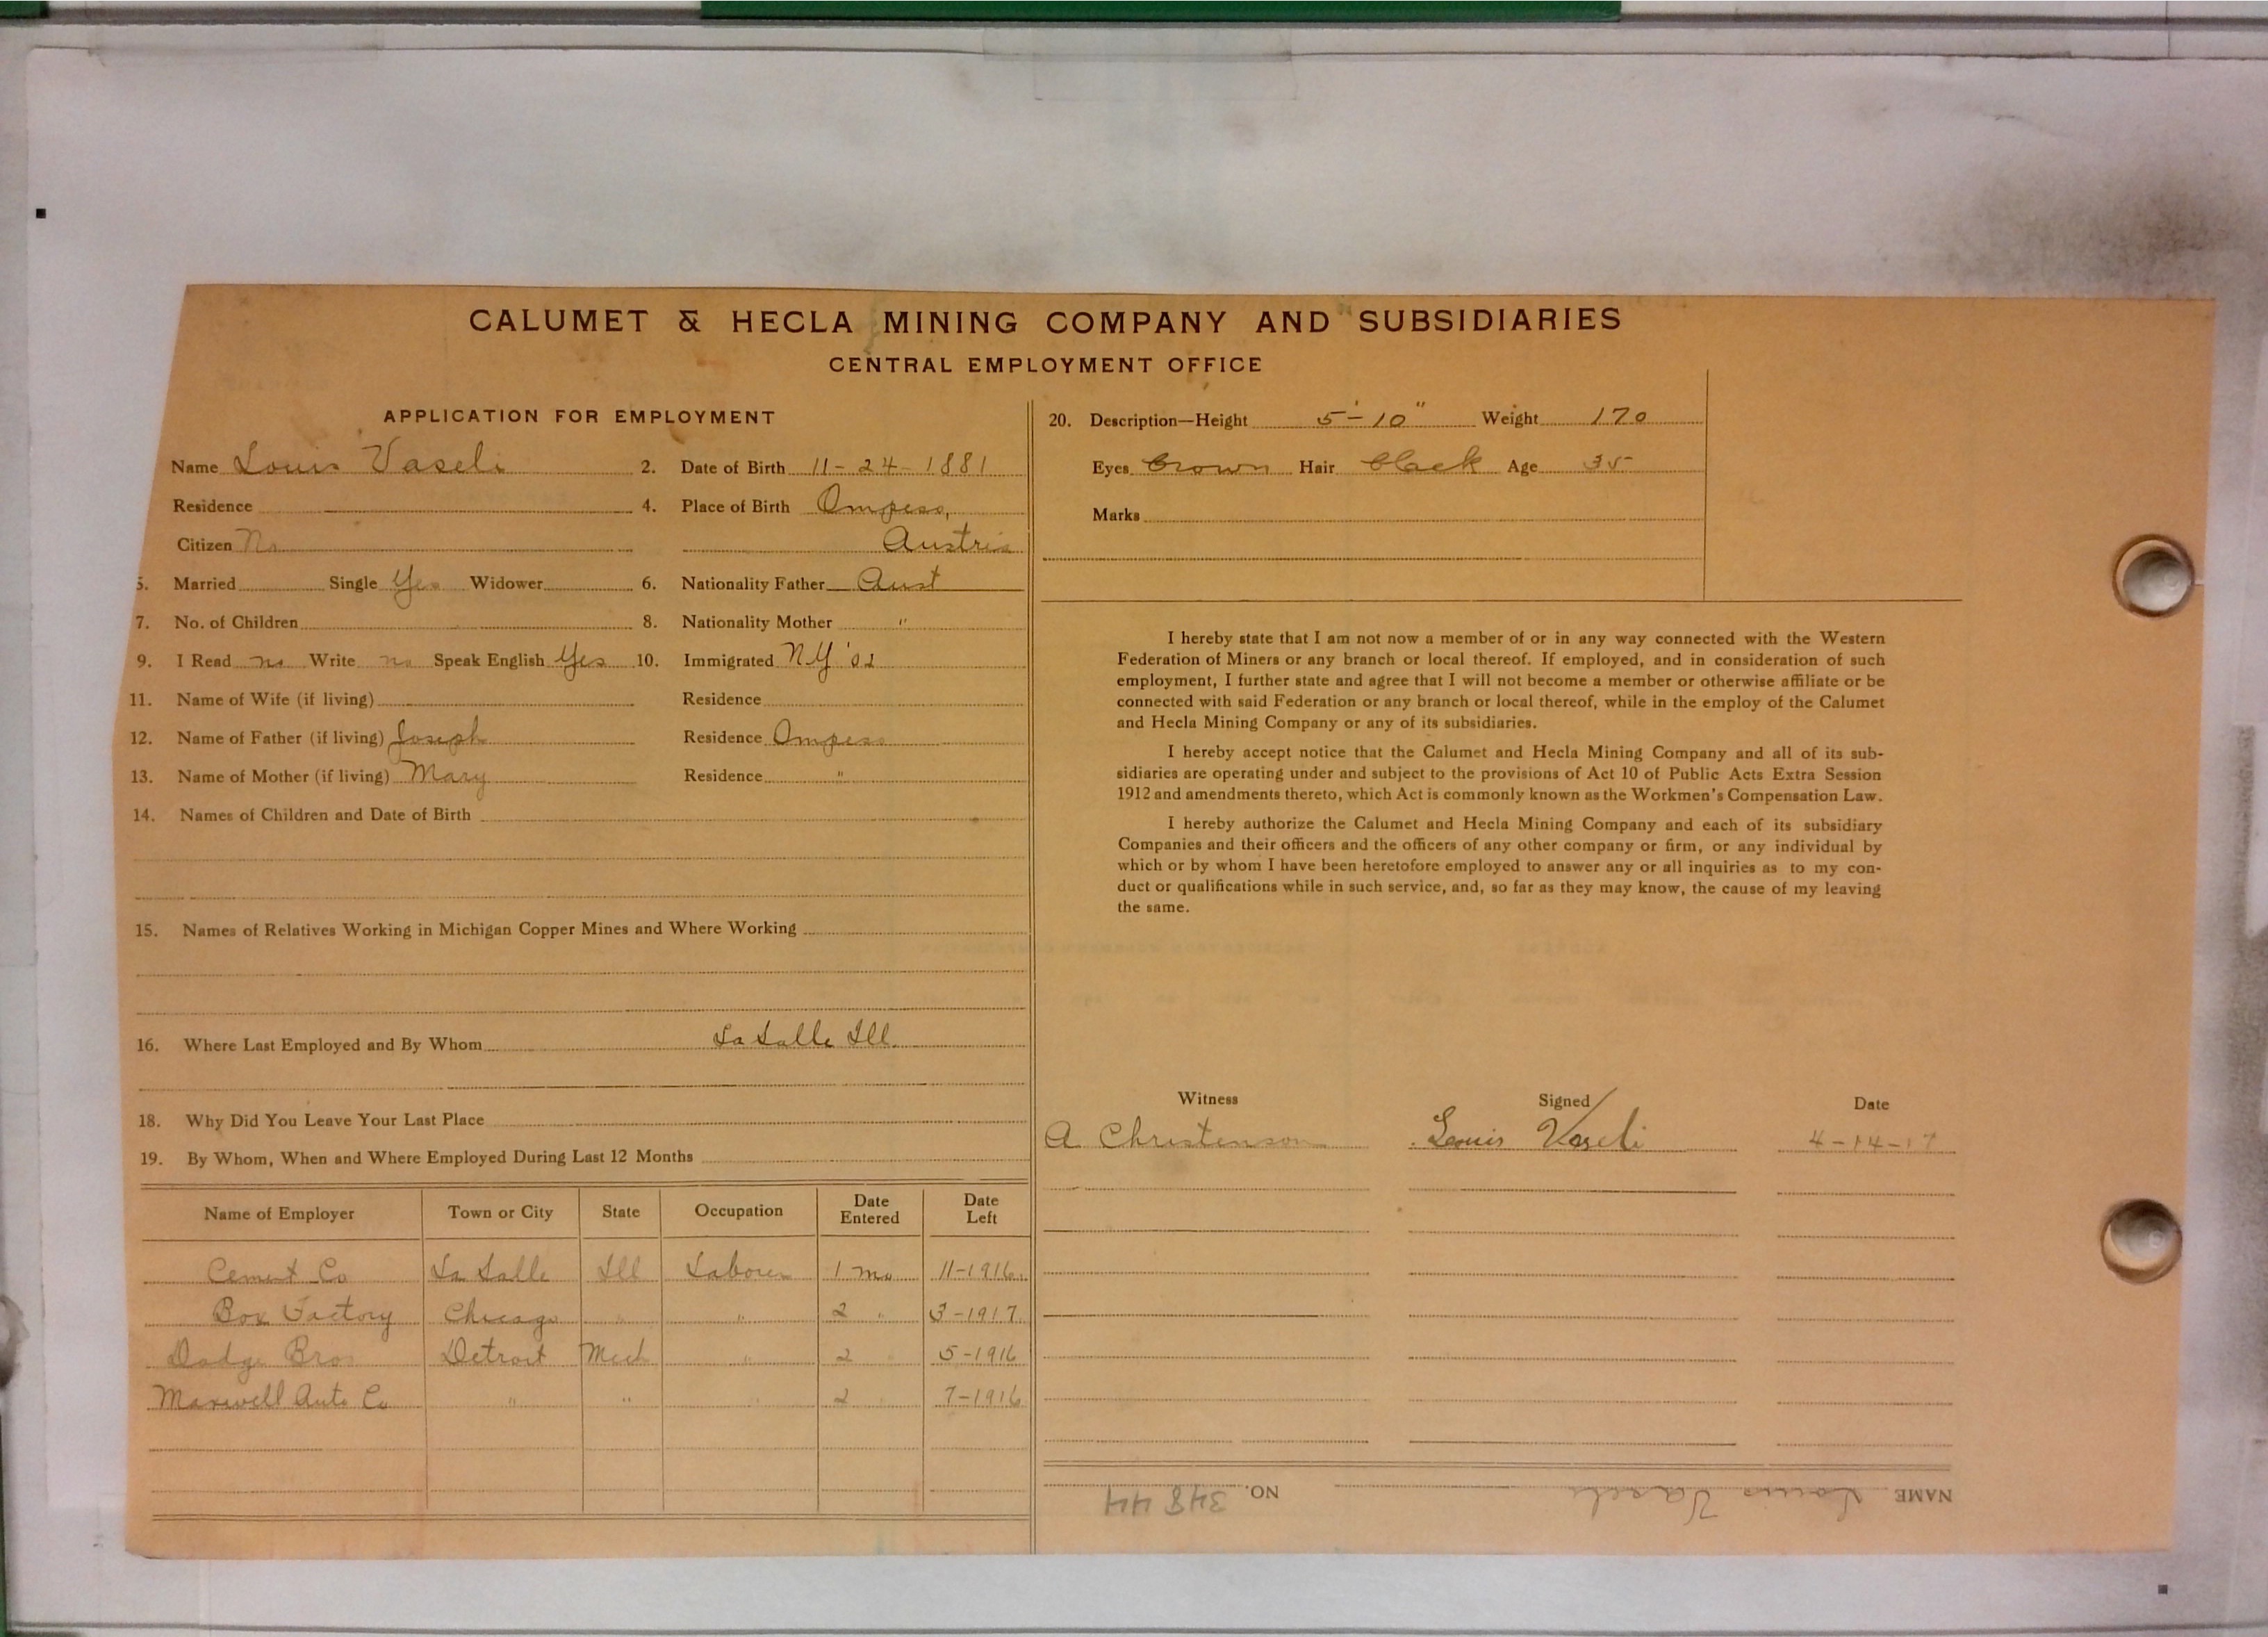 CALUMET & HECLA MINING COMPANY AND SUBSIDIARIES
CENTRAL EMPLOYMENT OFFICE
APPLICATION FOR EMPLOYMENT
Name Louis Vaseli 2. Date of Birth 11-24-1881
Residence 4. Place of Birth Ompeso,
Citizen No Austria
5. Married Single Yes Widower 6. Nationality Father Aust
7. No. of Children 8. Nationality Mother "
9. I Read no Write no Speak English Yes 10. Immigrated NY '02
11. Name of Wife (if living) Residence
12. Name of Father (if living) Joseph Residence Ompeso
13. Name of Mother (if living) Mary Residence "
14. Names of Children and Date of Birth
15. Names of Relatives Working in Michigan Copper Mines and Where Working
16. Where Last Employed and By Whom La Salle Ill.
18. Why Did You Leave Your Last Place
19. By Whom, When and Where Employed During Last 12 Months
Name of Employer Town or City State Occupation Date Entered Date Left
Cement Co La Salle Ill Laborer 1 mo 11-1916
Box Factory Chicago " " 2 " 3-1917
Dodge Bros Detroit Mich " 2 " 5-1916
Maxwell Auto Co " " " 2 " 7-1916
20. Description—Height 5'-10" Weight 170
Eyes brown Hair black Age 35
Marks
I hereby state that I am not now a member of or in any way connected with the Western
Federation of Miners or any branch or local thereof. If employed, and in consideration of such
employment, I further state and agree that I will not become a member or otherwise affiliate or be
connected with said Federation or any branch or local thereof, while in the employ of the Calumet
and Hecla Mining Company or any of its subsidiaries.
I hereby accept notice that the Calumet and Hecla Mining Company and all of its sub-
sidiaries are operating under and subject to the provisions of Act 10 of Public Acts Extra Session
1912 and amendments thereto, which Act is commonly known as the Workmen's Compensation Law.
I hereby authorize the Calumet and Hecla Mining Company and each of its subsidiary
Companies and their officers and the officers of any other company or firm, or any individual by
which or by whom I have been heretofore employed to answer any or all inquiries as to my con-
duct or qualifications while in such service, and, so far as they may know, the cause of my leaving
the same.
Witness Signed Date
A Christenson Louis Vaseli 4-14-17
NAME Louis Vaseli NO. 34844